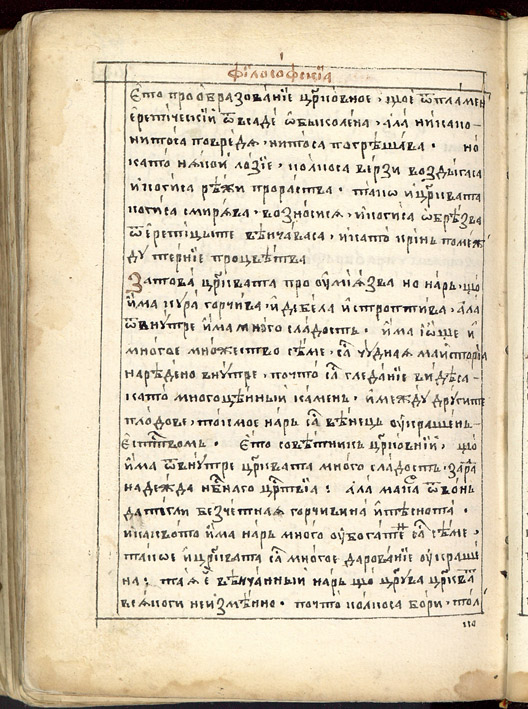 фїлософскїѧ
Єто прообразованїе црковное, щое ѿ пламен
еретическїй ѿвсаде ѡбиколена, ала никако
нитоса повредѧ, нитоса погрѣшава. но
като нѣкой лозїе, колкоса верзи воздыгаса
и когиса рѣжи прораства. такѡ и црквата
когиса смирѧва, возносисѧ, и когиса ѡбрѣзва
ѿ еретицыте вѣнчаваса, и като крінь помеж
ду тернїе процвѣтва
Затова црквата про ѹмїѧзва но наръ, що
има кура горчива, и дебела и стропотива, ала
ѿвнутре има много сладость. има іѡще и
многое множество сѣме, са чуднаѧ маисторїа
нарѣдено внутре, почто са гледанїе види са
като многоцѣнныи камень, и между другите
плодове, тоисмое наръ са вѣнець ѹкрашень
естетвомъ. Єто совѣтникъ црковнїй, що
има ѿвнутре црквата много сладость, заради
надежда нбнаго цртвїѧ: ала макаръ ѿвонъ
да тегли безчетнаѧ горчивина и тѣснота.
и каквото има наръ много ѹбогате са сѣме,
такое и црквата са многое дарованїе ѹкраше
на: таѧ е вѣнчанныи наръ що црува црквата
всѧкоги неизмѣнно. почто колкоса бори, тол